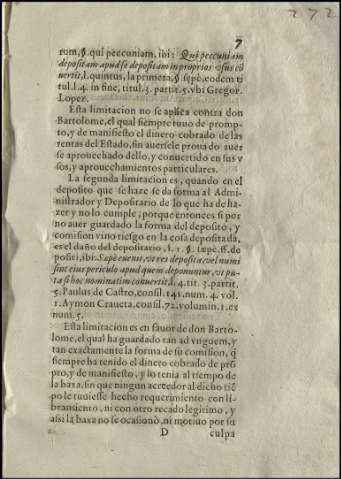 272
7
rom, §. qui peccuniam, ibi: Qui peccuniam
depositam apud se depositam in proprios vsus cō
uertit, l. quineus, la primera, §. sepè, eodem ti
tul. l. 4. in fine, titul. 3. partit. 5. vbi Gregor.
Lopez.
Esta limitacion no se aplica contra don
Bartolome, el qual siẽpre tuuo de promp-
to, y de manifiesto el dinero cobrado de las
rentas del Estado, sin auersele prouado auer
se aprouechado dello, y conuertido en sus v
sos, y aprouechamientos particulares.
La segunda limitacion es, quando en el
deposito que se haze se da forma al Admi-
nistrador y Depositario de lo que ha de ha-
zer y no lo cumple, porque entonces si por
no auer guardado la forma del deposito, y
comision vino riesgo en la cosa depositada,
es el daño del depositario, l. 1. §. sæpè. ff. de
positi, ibi: Sæpè euenit, vt res deposita, vel numi
sint eius periculo apud quem deponuntur, vt pu-
ta si hoc nominatim conuertit, l. 4. tit. 3. partit.
5. Paulus de Castro, consil. 141. num. 4. vol.
1. Aymon Craueta, consil. 72. volumin. 1. ex
num. 5.
Esta limitacion es en fauor de don Barto-
lome, el qual ha guardado tan ad vnguem, y
tan exactamente la forma de su comision, q̃
siempre ha tenido el dinero cobrado de prõ
pto, y de manifiesto, y lo tenia al tiempo de
la baxa, sin que ningun acreedor al dicho tiẽ
po le tuuiesse hecho requerimiento con li-
bramiento, ni con otro recado legitimo, y
assi la baxa no se ocasionò, ni motiuo por su
D culpa